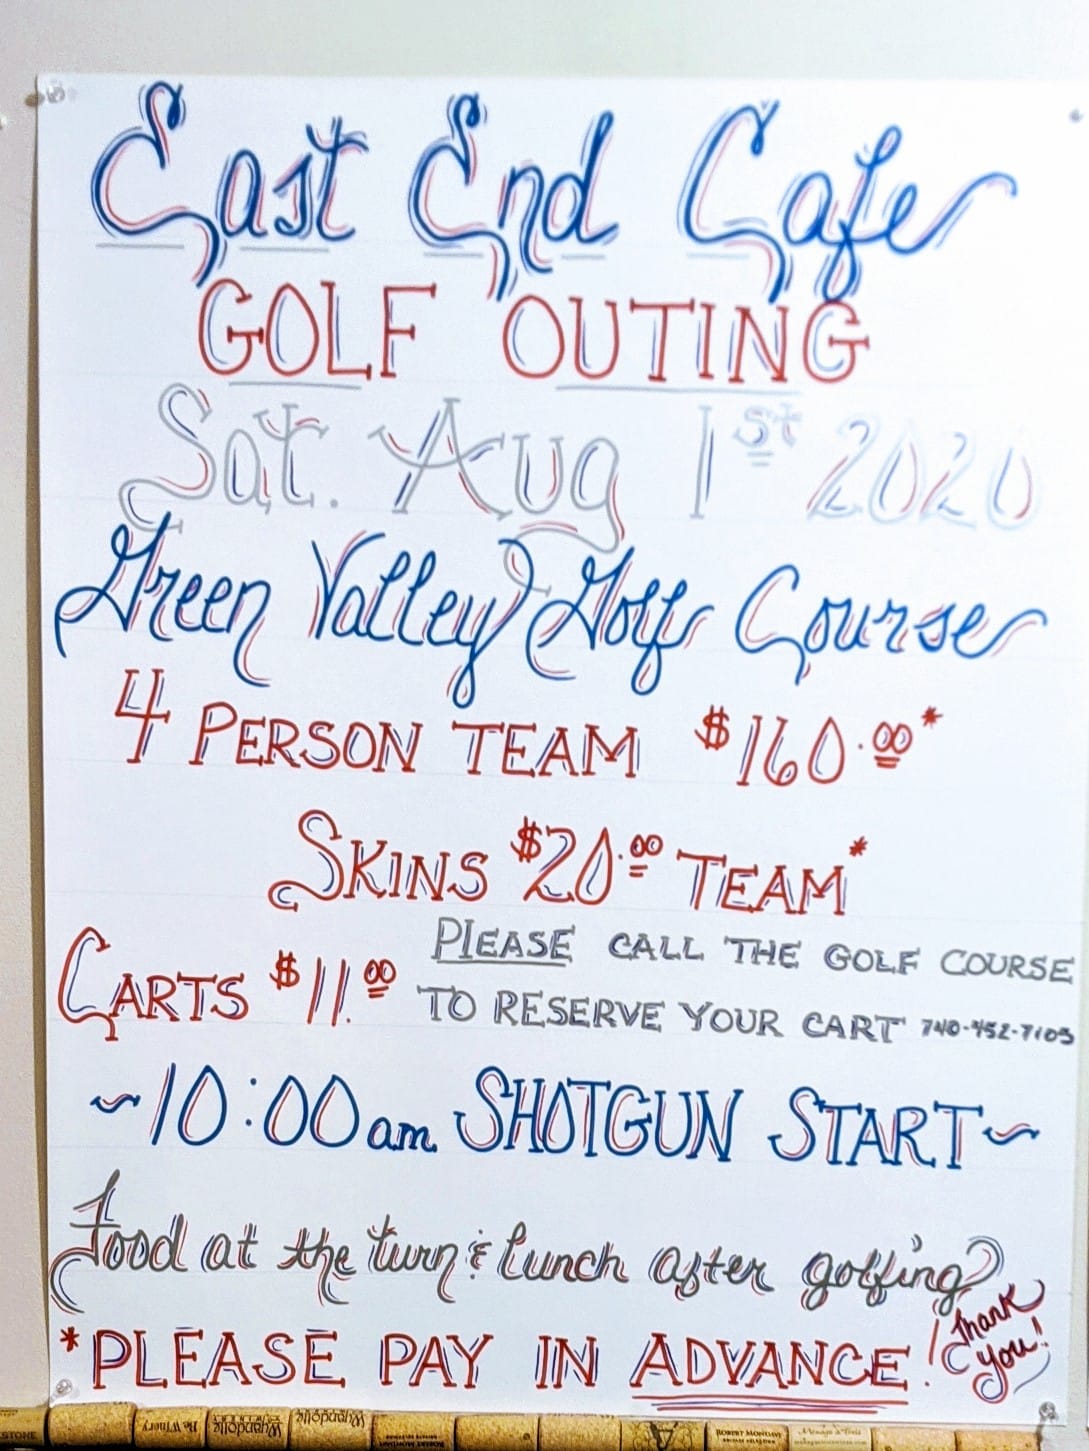 East End Cafe
GOLF OUTING
Sat. Aug 1st 2020
Green Valley Golf Course
4 PERSON TEAM $160.00*
SKINS $20.00 TEAM*
CARTS $11.00 PLEASE CALL THE GOLF COURSE
TO RESERVE YOUR CART 740-452-7105
~10:00am SHOTGUN START~
Food at the turn & lunch after golfing
*PLEASE PAY IN ADVANCE!
Thank
you!
STONE
Wyandotte
WINERY
Wyandotte
ROBERT MONDAVI
ROBERT MONDAVI
PRIVATE SELECTION